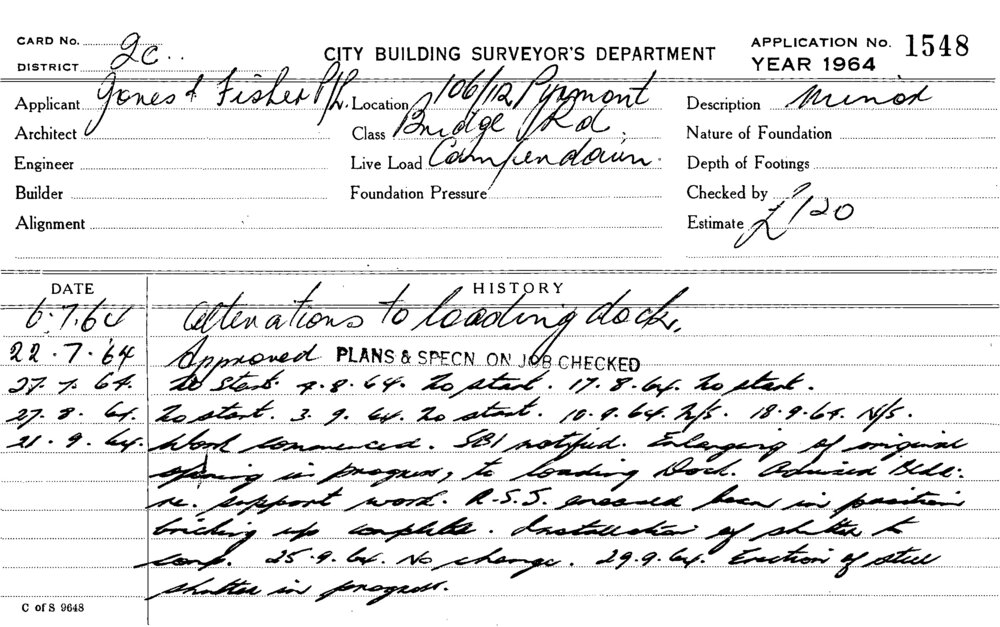 CARD No.
DISTRICT 2c.
CITY BUILDING SURVEYOR'S DEPARTMENT
APPLICATION No. 1548
YEAR 1964
Applicant Jones & Fisher P/L.
Location 106/12 Pyrmont
Description Minor
Architect
Class Bridge Rd,
Nature of Foundation
Engineer
Live Load Camperdown.
Depth of Footings
Builder
Foundation Pressure
Checked by
Alignment
Estimate £120
DATE
HISTORY
6.7.64 Alterations to loading dock,
22.7.64 Approved PLANS & SPECN. ON JOB CHECKED
27.7.64. No Start. 4.8.64. No start. 17.8.64. No start.
27.8.64. No start. 3.9.64. No start. 10.9.64. N/S. 18.9.64. N/S.
21.9.64. Work commenced. SBI notified. Enlarging of original
opening in progress, to loading Dock. Advised Bldr.
re. support work. R.S.J. encased beam in position
bricking up complete. Installation of shutter to
comp. 25.9.64. No change. 29.9.64. Erection of steel
shutter in progress.
C of S 9648